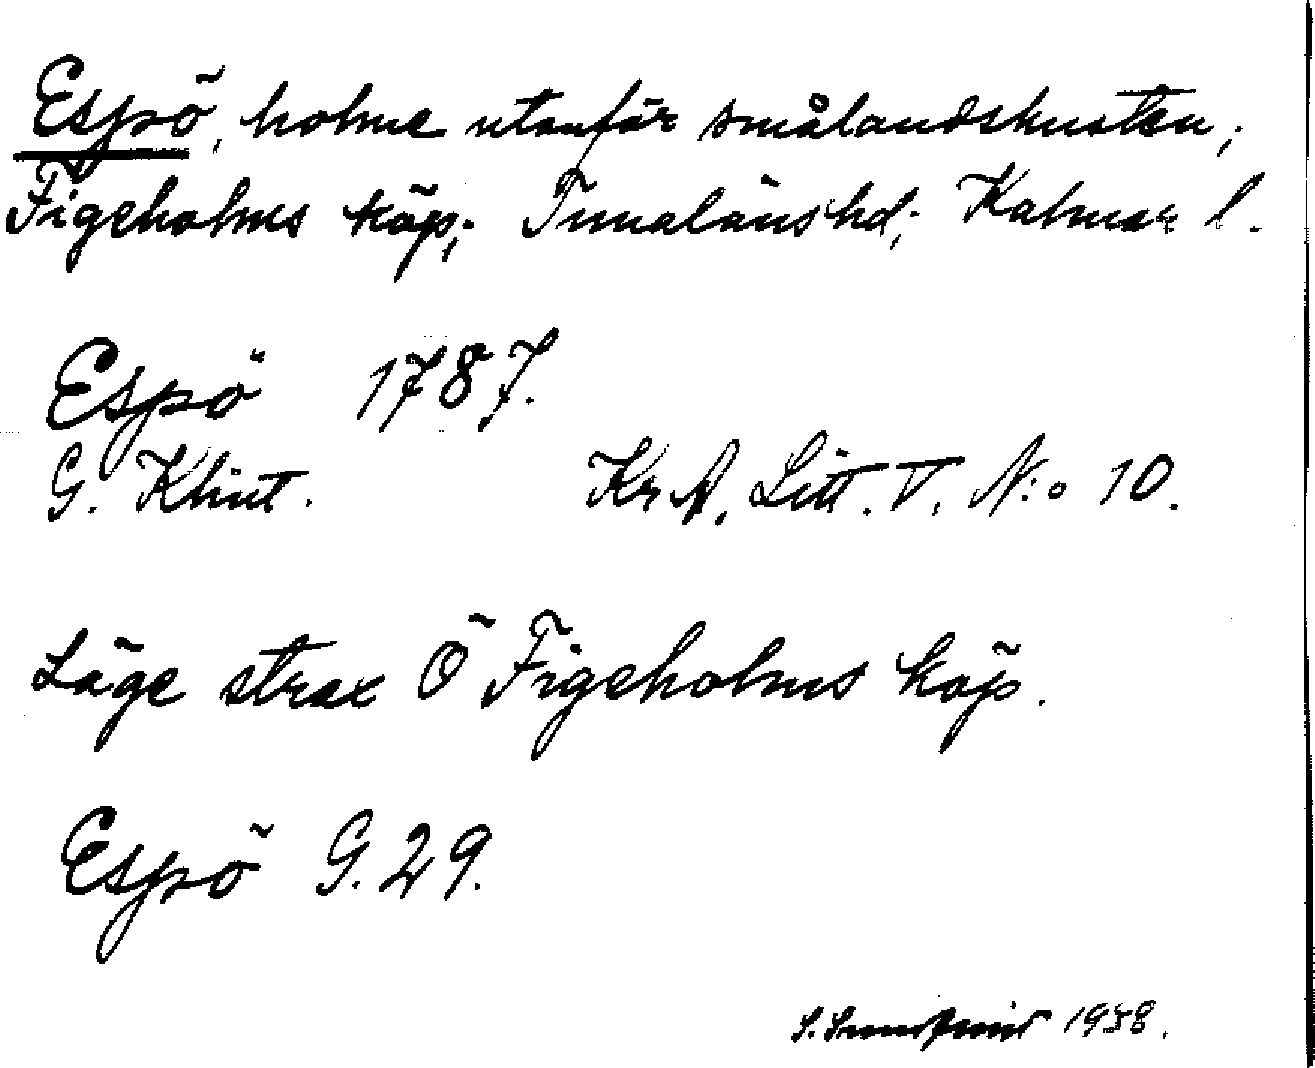 Espö, holme utanför smålandskusten,
Figeholms köp., Tunaläns hd, Kalmar l.
Espö 1787.
G. Klint. KrA, Litt. V. N:o 10.
Läge strax Ö Figeholms köp.
Espö G. 29.
S. Sundqvist 1958.